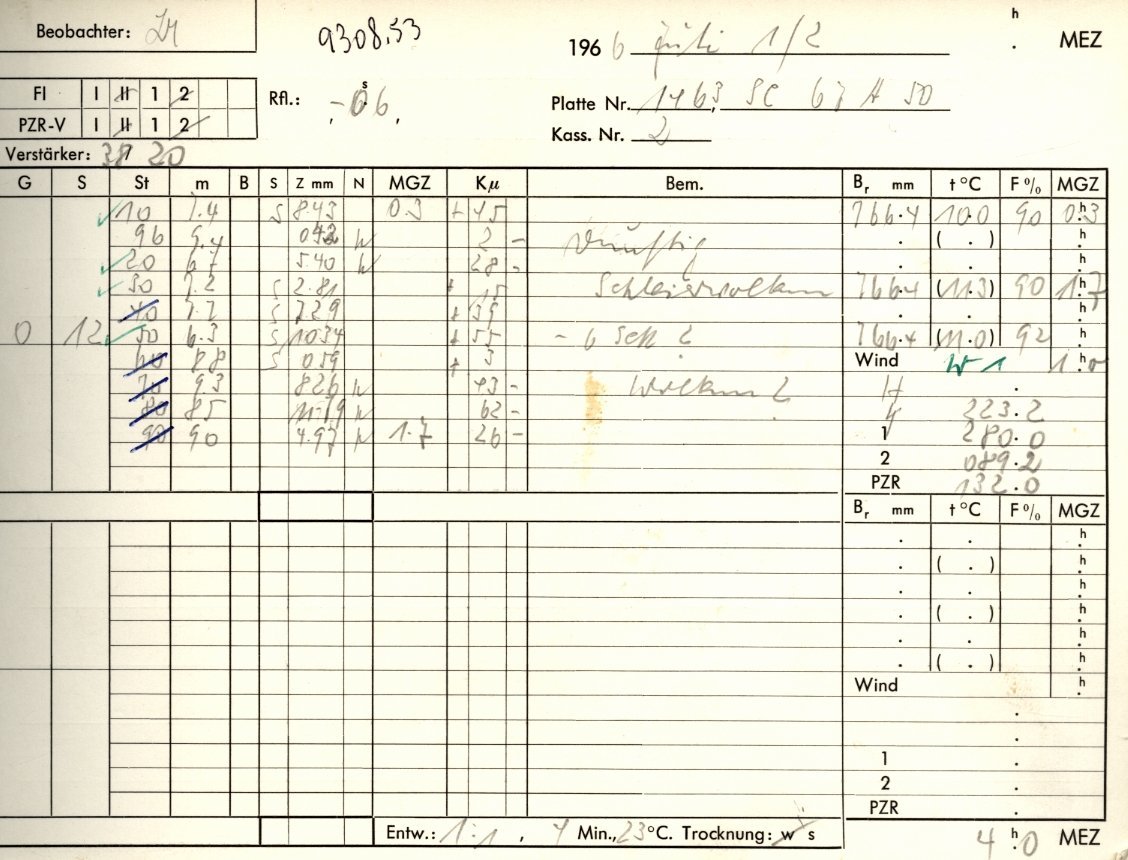 Beobachter:
9308.53
1966 Juli 1/2 h . MEZ
FI I II 1 2
PZR-V I II 1 2
Rfl.: -0.6 s
Platte Nr. 1463, SC 67 A 50
Kass. Nr. 2
Verstärker: 20
G S St m B S Z mm N MGZ Kµ Bem. Br mm t °C F % MGZ
10 7.4 S 8.43 0.3 + 45 766.4 10.0 90 0.3 h
96 9.4 N 2 - Dunstig . ( . ) h
20 5.40 N 28 - . . h
30 7.2 S 2.81 + 15 Schleierwolken 766.4 (11.3) 90 1.7 h
40 7.7 S 7.29 + 39 . . h
0 12 50 6.3 S 10.34 + 55 766.4 (11.0) 92 h
60 8.8 S 0.59 + 3 Wind W 1 1.0 h
70 9.3 8.26 N 43 - Wolken
80 8.5 11.19 N 62 - 223.2
90 9.0 4.97 N 1.7 26 - 1 280.0
2 089.2
PZR 132.0
Br mm t °C F % MGZ
. . h
. ( . ) h
. . h
. ( . ) h
. . h
. ( . ) h
Wind h
.
1 .
2 .
PZR .
Entw.: 1:1, 4 Min., 23 °C. Trocknung: w s 4 h 0 MEZ